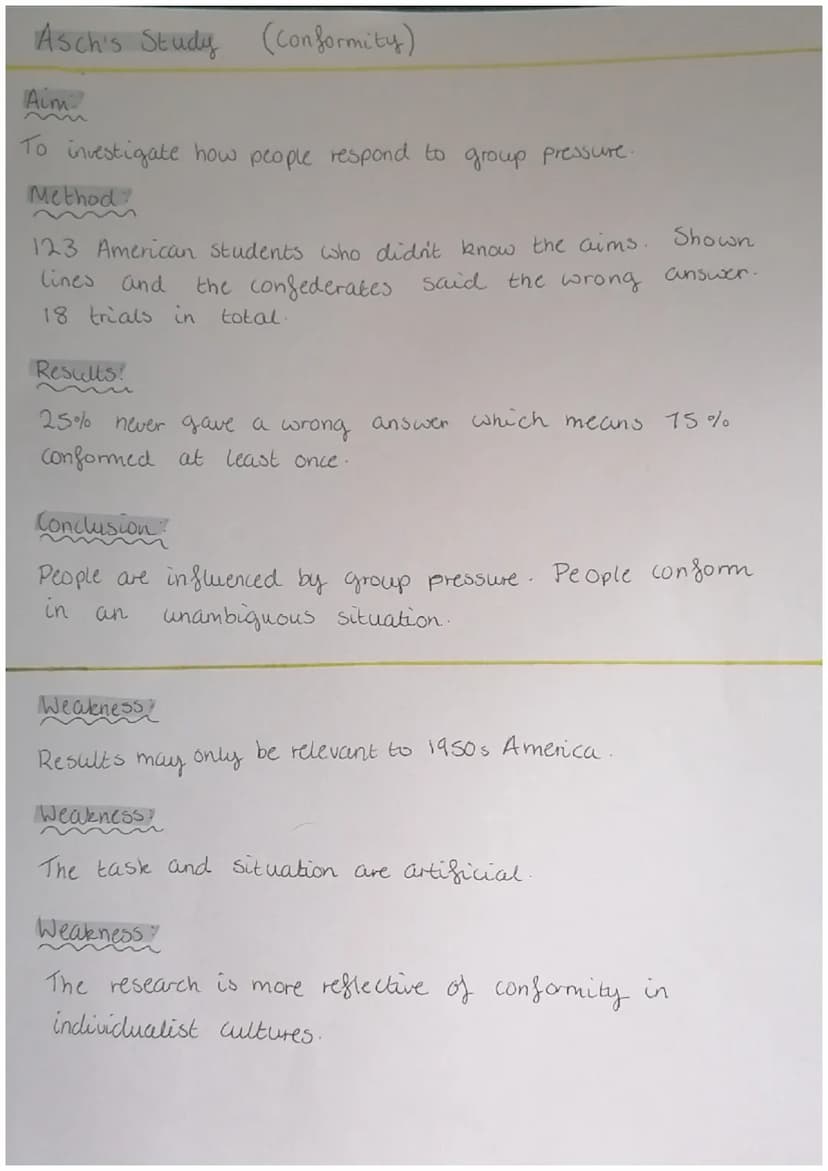 Asch's Study (Conformity)
Aim:
To investigate how people respond to group pressure.
Method:
123 American students who didn't know the aims. Shown
lines and the confederates said the wrong answer.
18 trials in total.
Results:
25% never gave a wrong answer which means 75%
conformed at least once.
Conclusion:
People are influenced by group pressure. People conform
in an unambiguous situation.
Weakness:
Results may only be relevant to 1950s America.
Weakness:
The task and situation are artificial.
Weakness:
The research is more reflective of conformity in
individualist cultures.